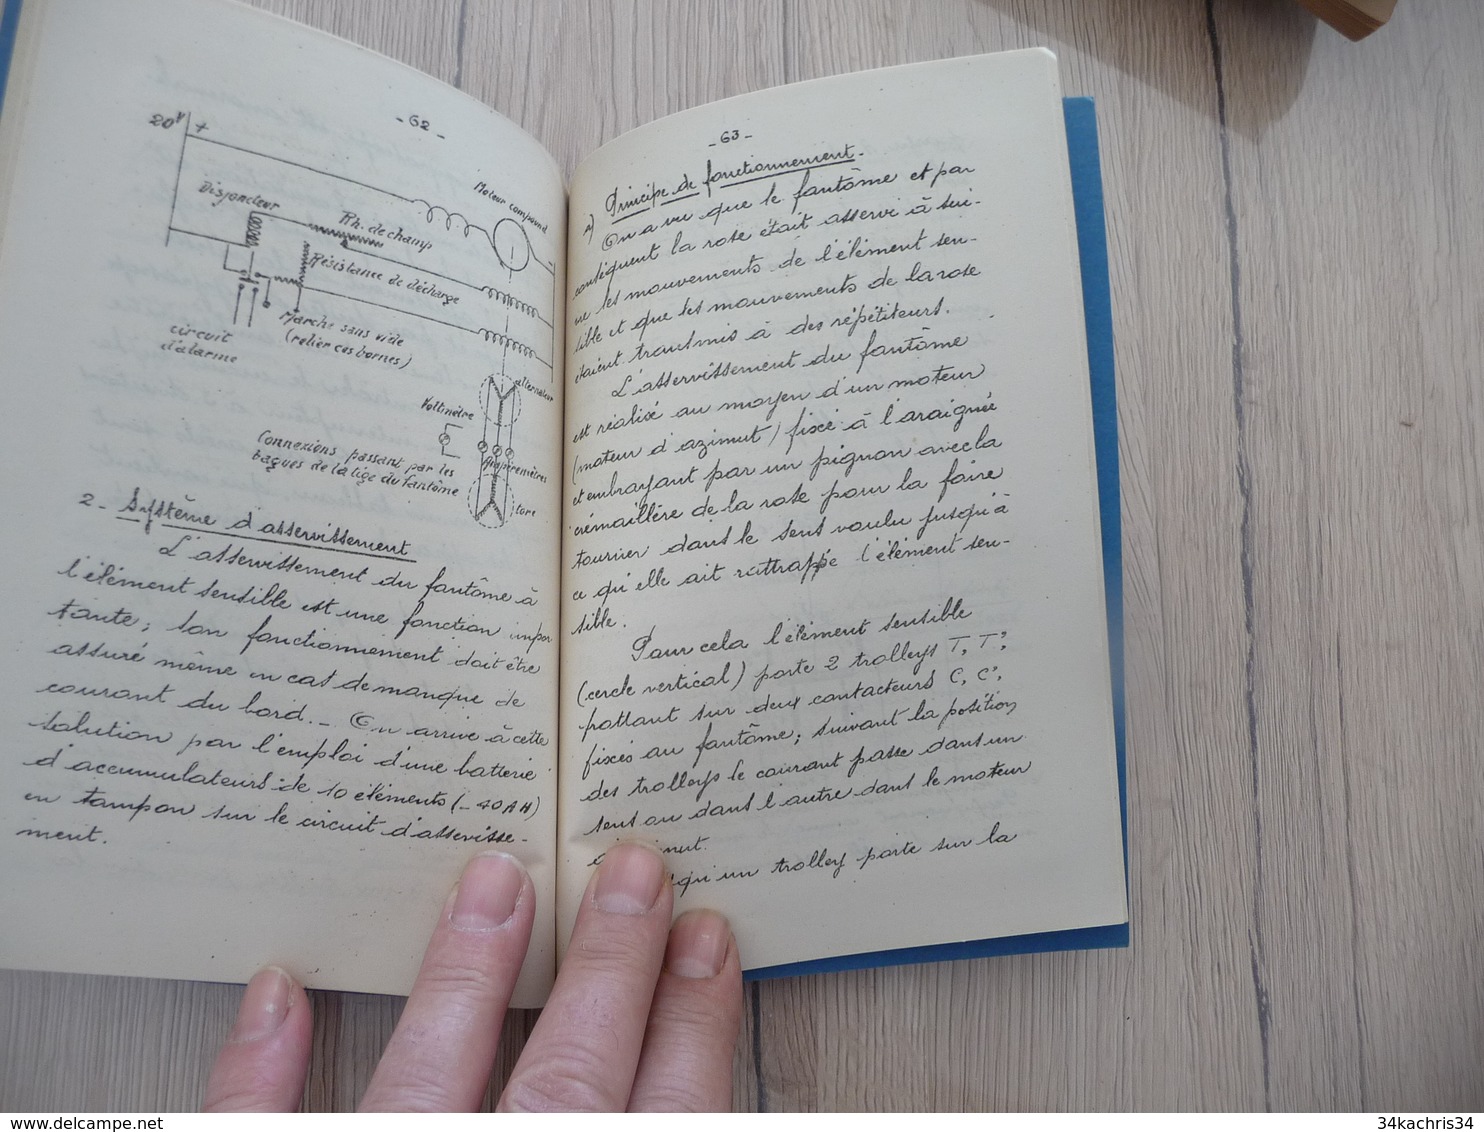 - 62 -
20V +
Disjoncteur
Rh. de champ
Moteur compound
Résistance de décharge
Marche sans vide
(relier ces bornes)
circuit
d'alarme
alternateur
Voltmètre
Ampèremètres
Connexions passant par les
bagues de la tige du fantôme
tore
2 - Système d'asservissement
L'asservissement du fantôme à
l'élément sensible est une fonction impor
tante; son fonctionnement doit être
assuré même en cas de manque de
courant du bord. - On arrive à cette
solution par l'emploi d'une batterie
d'accumulateurs de 10 éléments (- 40 AH)
en tampon sur le circuit d'asservisse-
ment.
- 63 -
Principe de fonctionnement.
On a vu que le fantôme et par
conséquent la rose était asservi à sui-
vre les mouvements de l'élément sen-
sible et que les mouvements de la rose
étaient transmis à des répétiteurs.
L'asservissement du fantôme
est réalisé au moyen d'un moteur
(moteur d'azimut) fixé à l'araignée
et embrayant par un pignon avec la
crémaillère de la rose pour la faire
tourner dans le sens voulu jusqu'à
ce qu'elle ait rattrappée l'élément sen-
sible.
Pour cela l'élément sensible
(cercle vertical) porte 2 trolleys T, T',
frottant sur deux contacteurs C, C',
fixés au fantôme; suivant la position
des trolleys le courant passe dans un
sens ou dans l'autre dans le moteur
mut.
qu'un trolley porte sur la
www.delcampe.net
34kachris34